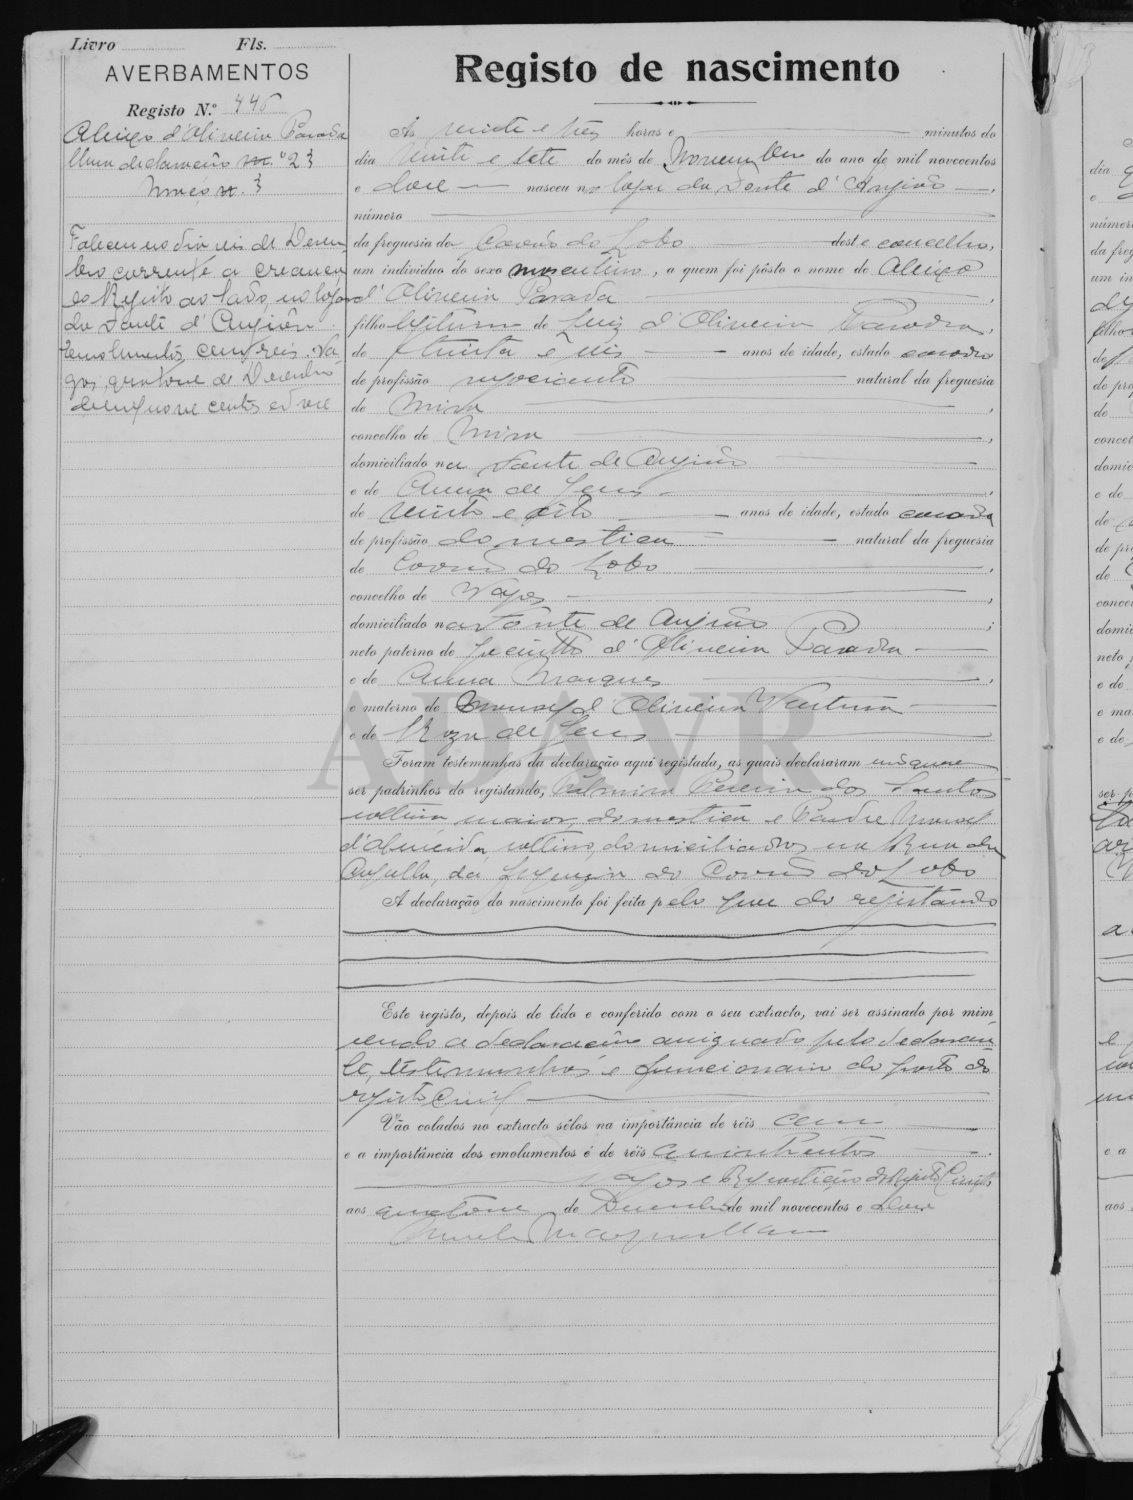 Livro Fls.
AVERBAMENTOS
Registo N.º 446
d'Oliveira Parada
Uma declaração n.º 23
Maço n. 3
Faleceu no dia seis de Dezem
bro corrente a creança
do Registo ao lado, no logar
da Fonte d'Angião.
Emolumentos, cem reis. Va
gos, quatorze de Dezembro
de mil nove centos e doze
Registo de nascimento
Ás vinte e três horas e minutos do
dia vinte e sete do mês de Novembro do ano de mil novecentos
e doze nasceu no logar da Fonte d'Angião,
número
da freguesia de Covão do Lobo deste concelho,
um indivíduo do sexo masculino, a quem foi pôsto o nome de
d'Oliveira Parada,
filho legitimo de Luiz d'Oliveira Parada,
de trinta e seis anos de idade, estado casado
de profissão negociante natural da freguesia
de Mira,
concelho de Mira,
domiciliado na Fonte de Angião
e de Anna de Jesus,
de vinte e oito anos de idade, estado casada
de profissão domestica natural da freguesia
de Covão do Lobo,
concelho de Vagos,
domiciliado na Fonte de Angião;
neto paterno de Jacintho d'Oliveira Parada
e de Anna Marques,
e materno de Manoel d'Oliveira Ventura
e de Roza de Jesus
Foram testemunhas da declaração aqui registada, as quais declararam
ser padrinhos do registando, Palmira Pereira dos Santos
solteira, maior, domestica e Padre Manoel
d'Almeida, solteiro, domiciliados na Rua da
Capella, da freguezia do Covão do Lobo
A declaração do nascimento foi feita pelo pae do registando
Este registo, depois de lido e conferido com o seu extracto, vai ser assinado por mim
sendo a declaração assignada pelo declaran
te, testemunhas e funcionario do posto do
registo Civil
Vão colados no extracto sêlos na importância de réis cem
e a importância dos emolumentos é de réis quinhentos.
Vagos e Repartição do Registo Civil,
aos quatorze de Dezembro de mil novecentos e doze
ADAVR